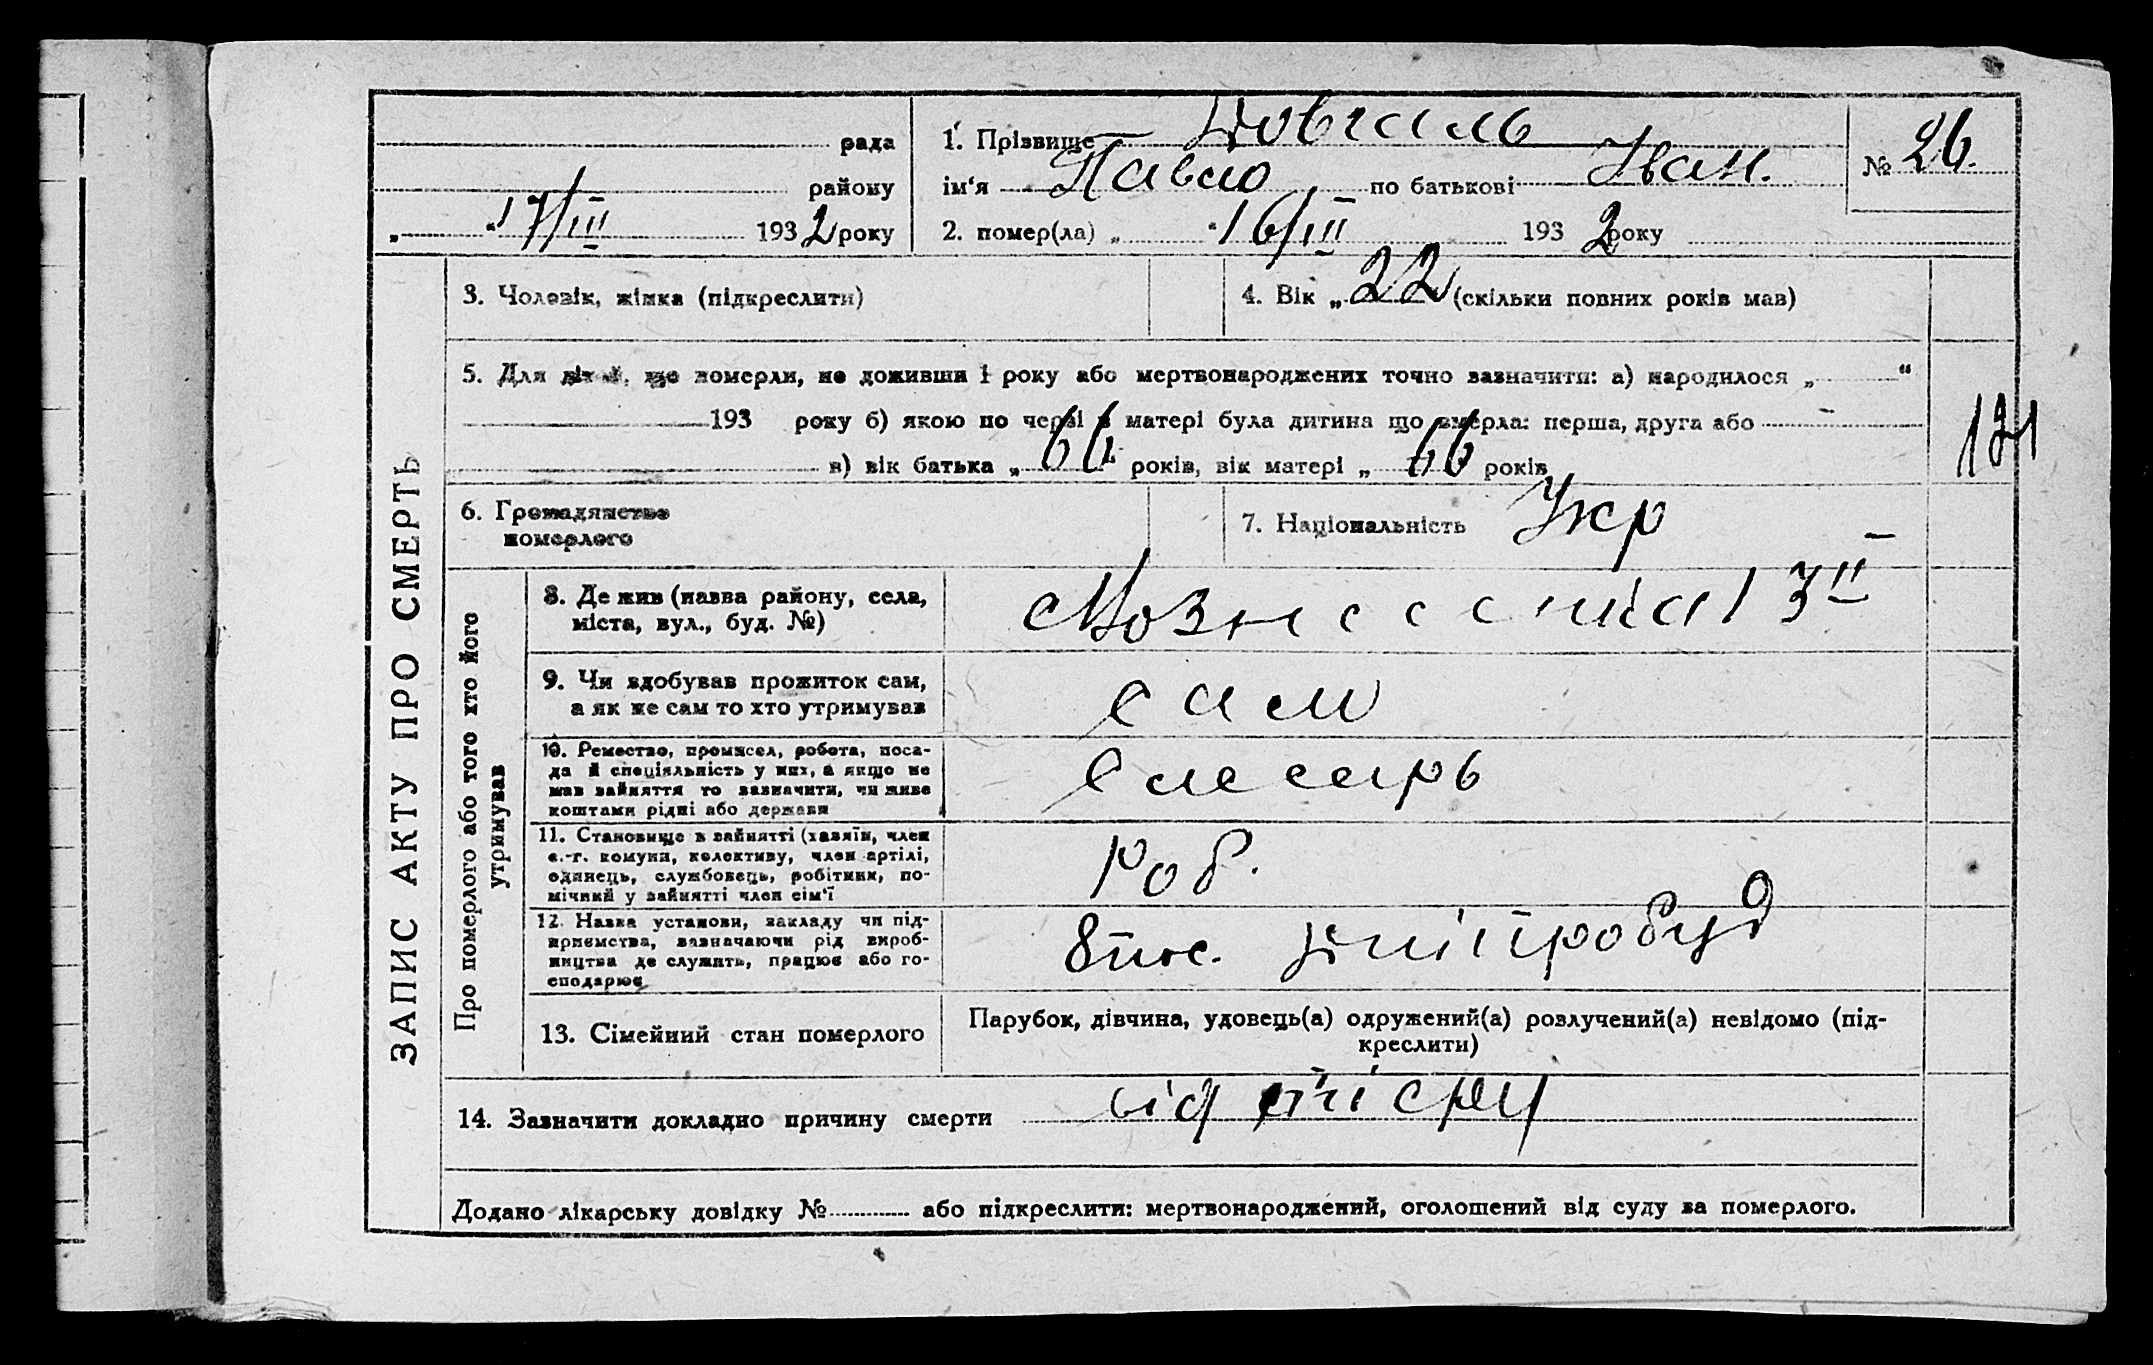 рада
району
„ “ 17/III 1932 року
1. Прізвище Довгаль
ім‘я Павло по батькові Іван.
2. помер(ла) „ “ 16/III 1932 року
№ 26.
ЗАПИС АКТУ ПРО СМЕРТЬ
3. Чоловік, жінка (підкреслити)
4. Вік „ 22 (скільки повних років мав)
5. Для дітей, що померли, не доживши 1 року або мертвонароджених точно зазначити: а) народилося „ “
193 року б) якою по черзі в матері була дитина що вмерла: перша, друга або
в) вік батька „ 66 років, вік матері „ 66 років
121
6. Громадянство
померлого
7. Національність Укр
Про померлого або того хто його
утримував
8. Де жив (назва району, села,
міста, вул., буд. №)
3 II
9. Чи здобував прожиток сам,
а як не сам то хто утримував
сам
10. Ремество, промисел, робота, поса-
да й спеціяльність у них, а якщо не
мав зайняття то зазначити, чи живе
коштами рідні або держави
слесарь
11. Становище в зайнятті (хазяїн, член
с.-г. комуни, колективу, член артілі,
одинець, службовець, робітник, по-
мічний у зайнятті член сім‘ї
роб.
12. Назва установи, закладу чи під-
приємства, зазначаючи рід вироб-
ництва де служить, працює або го-
сподарює
Дніпробуд
13. Сімейний стан померлого
Парубок, дівчина, удовець(а) одружений(а) розлучений(а) невідомо (під-
креслити)
14. Зазначити докладно причину смерти від
Додано лікарську довідку № або підкреслити: мертвонароджений, оголошений від суду за померлого.